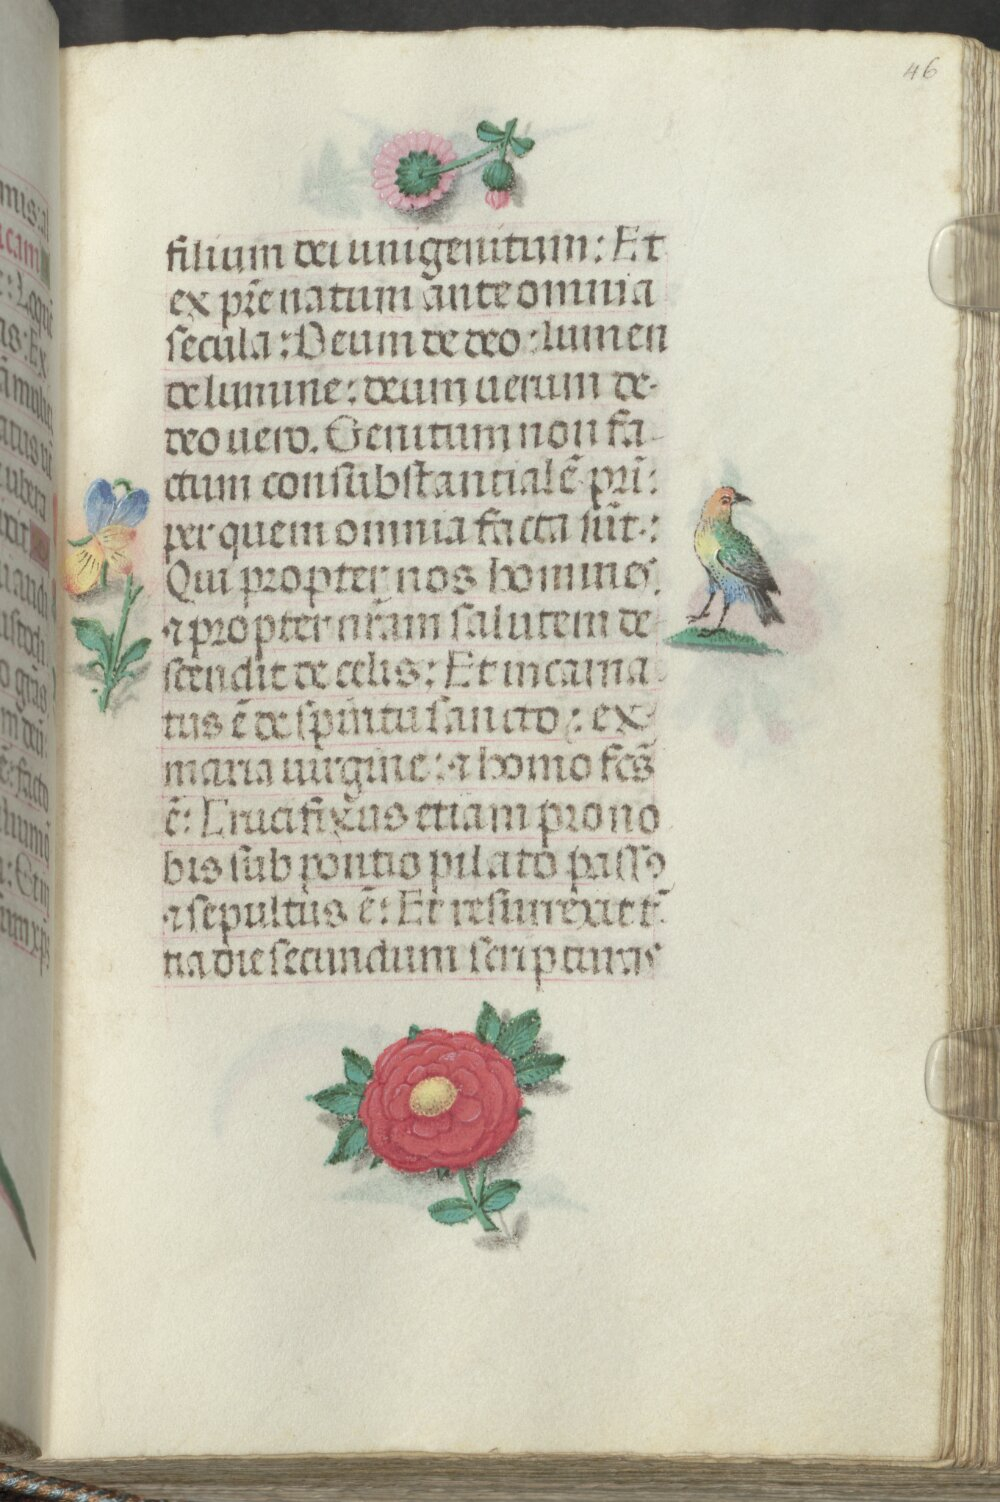 46
filium dei unigenitum: Et
ex pr̄e natum ante omnia
secula: Deum de deo: lumen
de lumine: deum uerum de-
deo uero. Genitum non fa-
ctum consubstantialē pri̅:
per quem omnia facta su̅t:
Qui propter nos homines
⁊ propter nr̄am salutem de
scendit de celis: Et incarna
tus ē de spiritu sancto: ex
maria uirgine: ⁊ homo fc̄s
ē: Crucifixus etiam pro no
bis sub pontio pilato passꝰ
⁊ sepultus ē: Et resurrexit t̄
tia die secundum scripturas